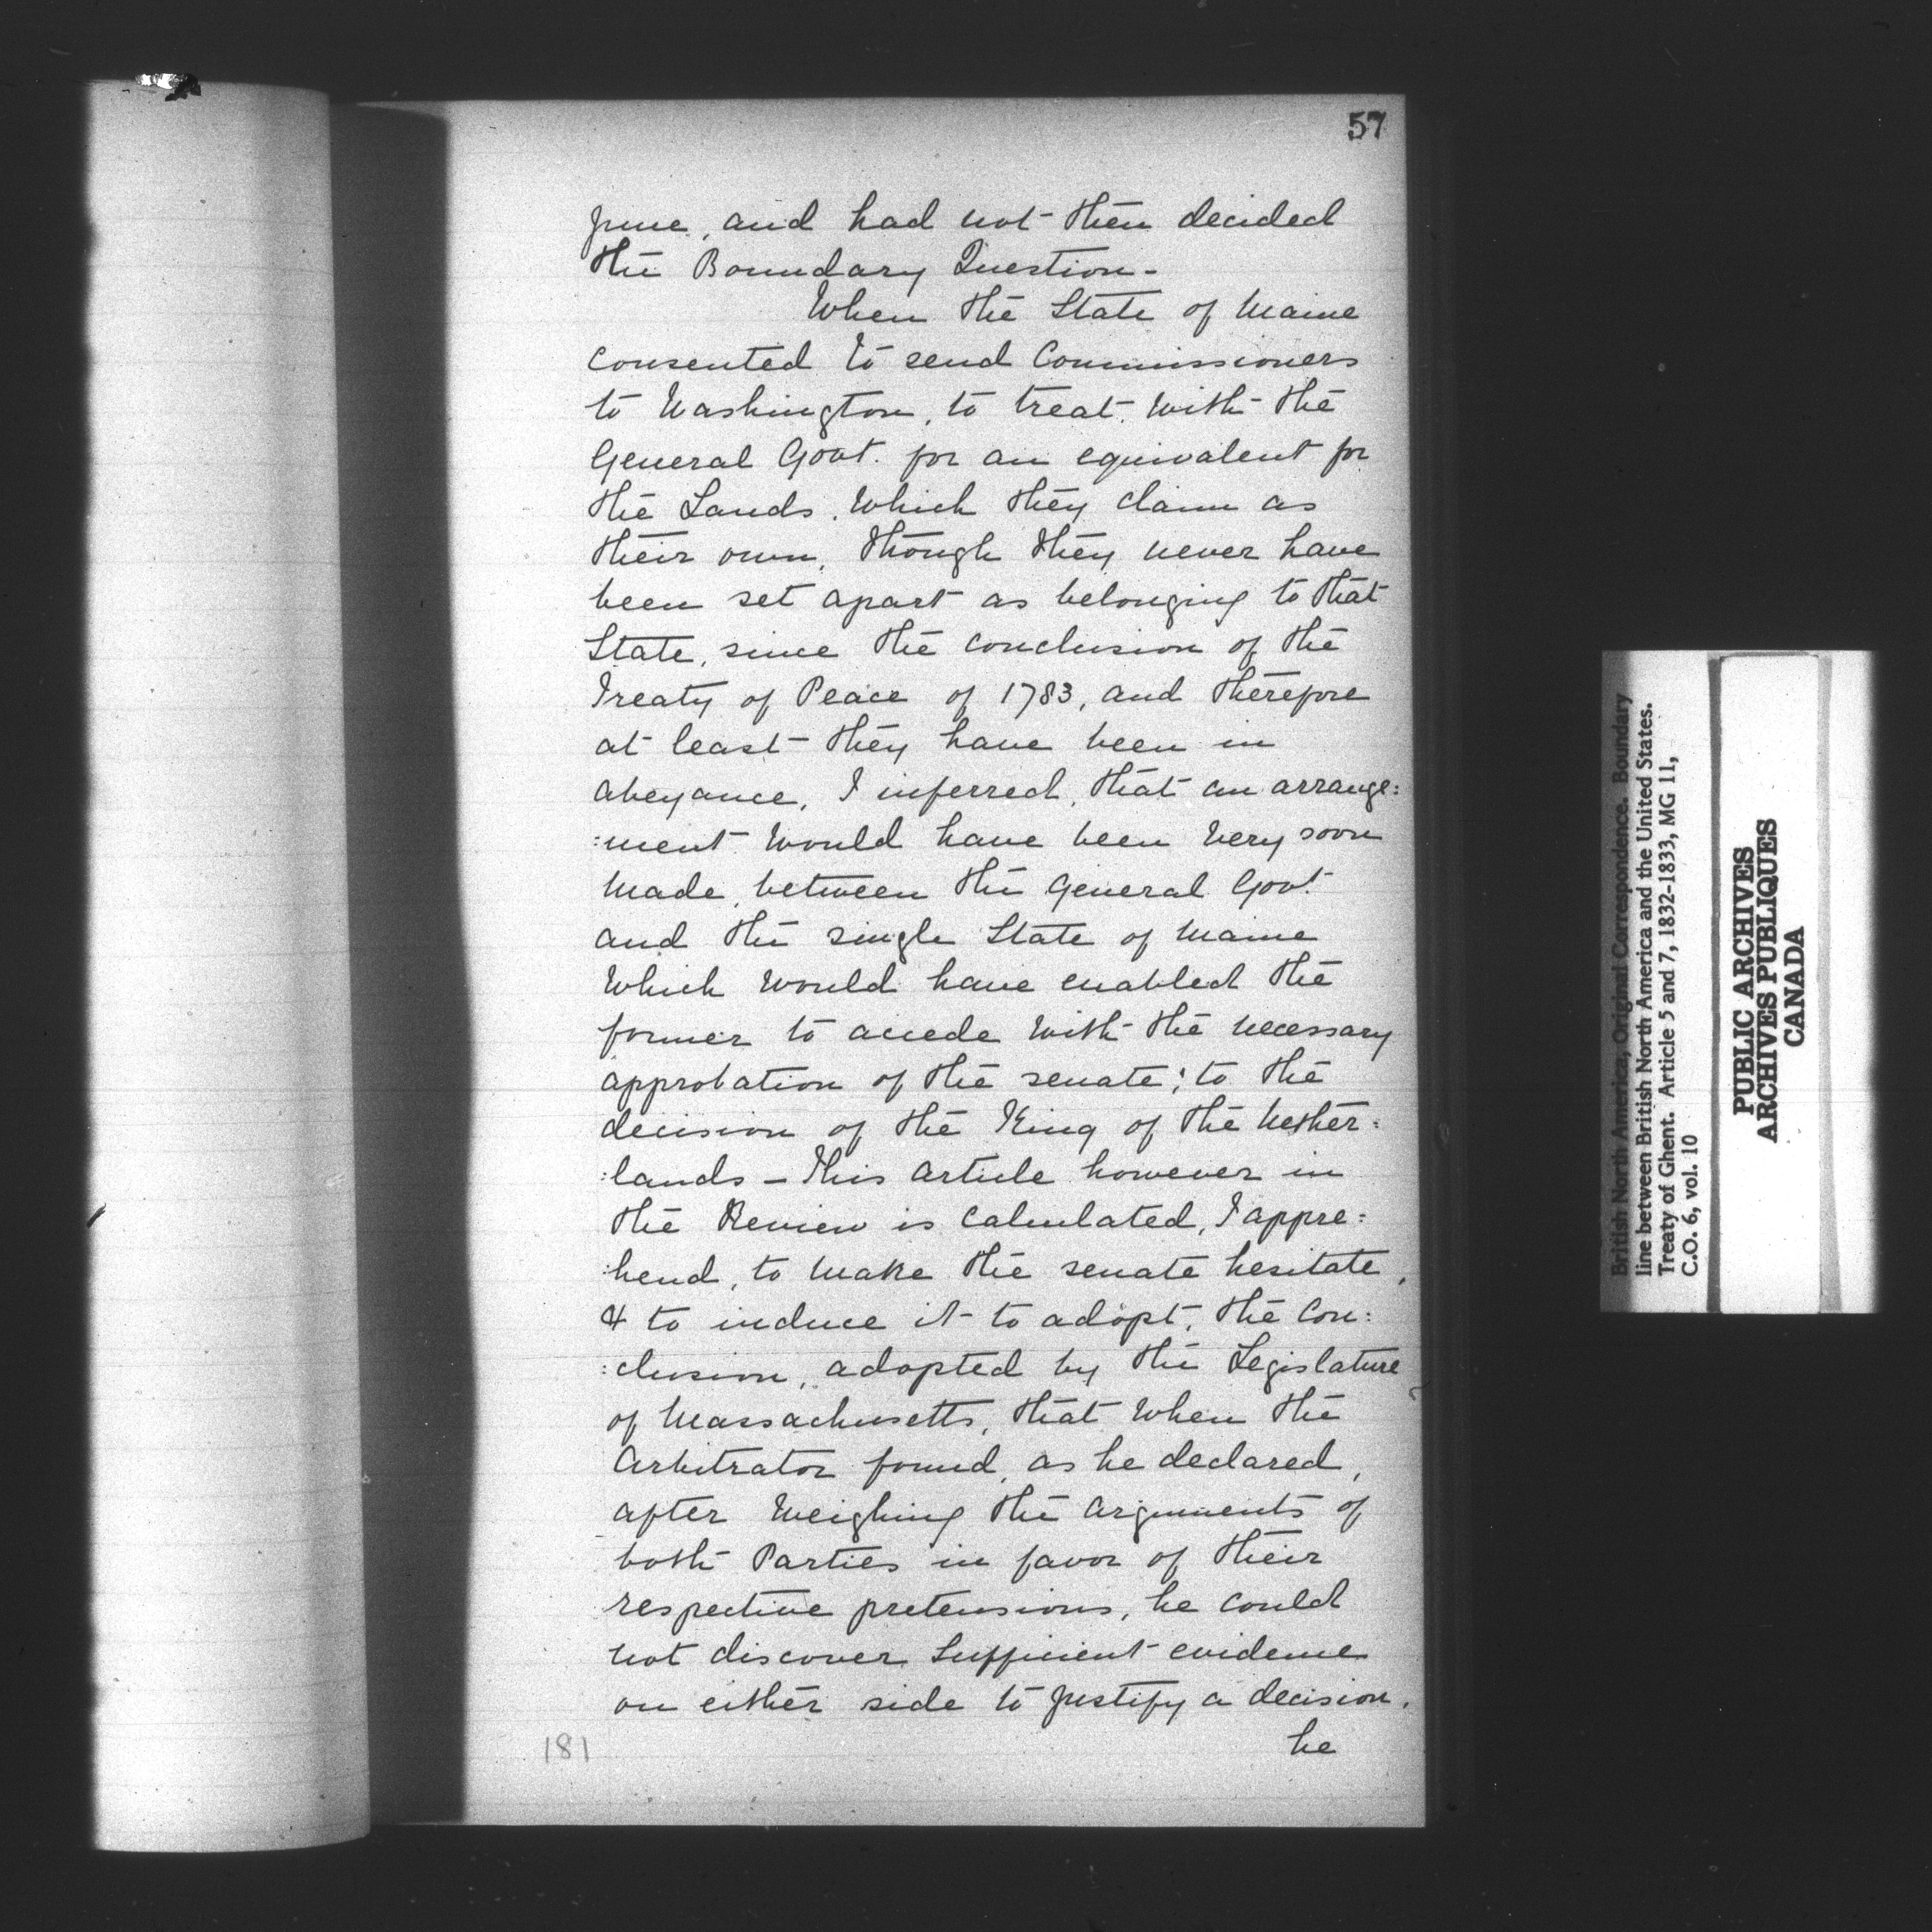 57
June, and had not then decided
the Boundary Question -
When the State of Maine
consented to send Commissioners
to Washington, to treat with the
General Govt. for an equivalent for
the Lands, which they claim as
their own, though they never have
been set apart as belonging to that
State, since the conclusion of the
Treaty of Peace of 1783, and therefore
at least they have been in
abeyance, I inferred, that an arrange:
:ment would have been very soon
made, between the General Govt.
and the single State of Maine
which would have enabled the
former to accede with the necessary
approbation of the senate; to the
decision of the King of the Nether:
:lands - This article however in
the Review is calculated, I appre:
:hend, to make the senate hesitate,
& to induce it to adopt, the con:
:clusion, adopted by the Legislature
of Massachusetts, that when the
Arbitrator found, as he declared,
after weighing the arguments of
both Parties in favor of their
respective pretensions, he could
not discover sufficient evidence
on either side to justify a decision,
he
181
British North America, Original Correspondence. Boundary
line between British North America and the United States.
Treaty of Ghent. Article 5 and 7, 1832-1833, MG 11,
C.O. 6, vol. 10
PUBLIC ARCHIVES
ARCHIVES PUBLIQUES
CANADA